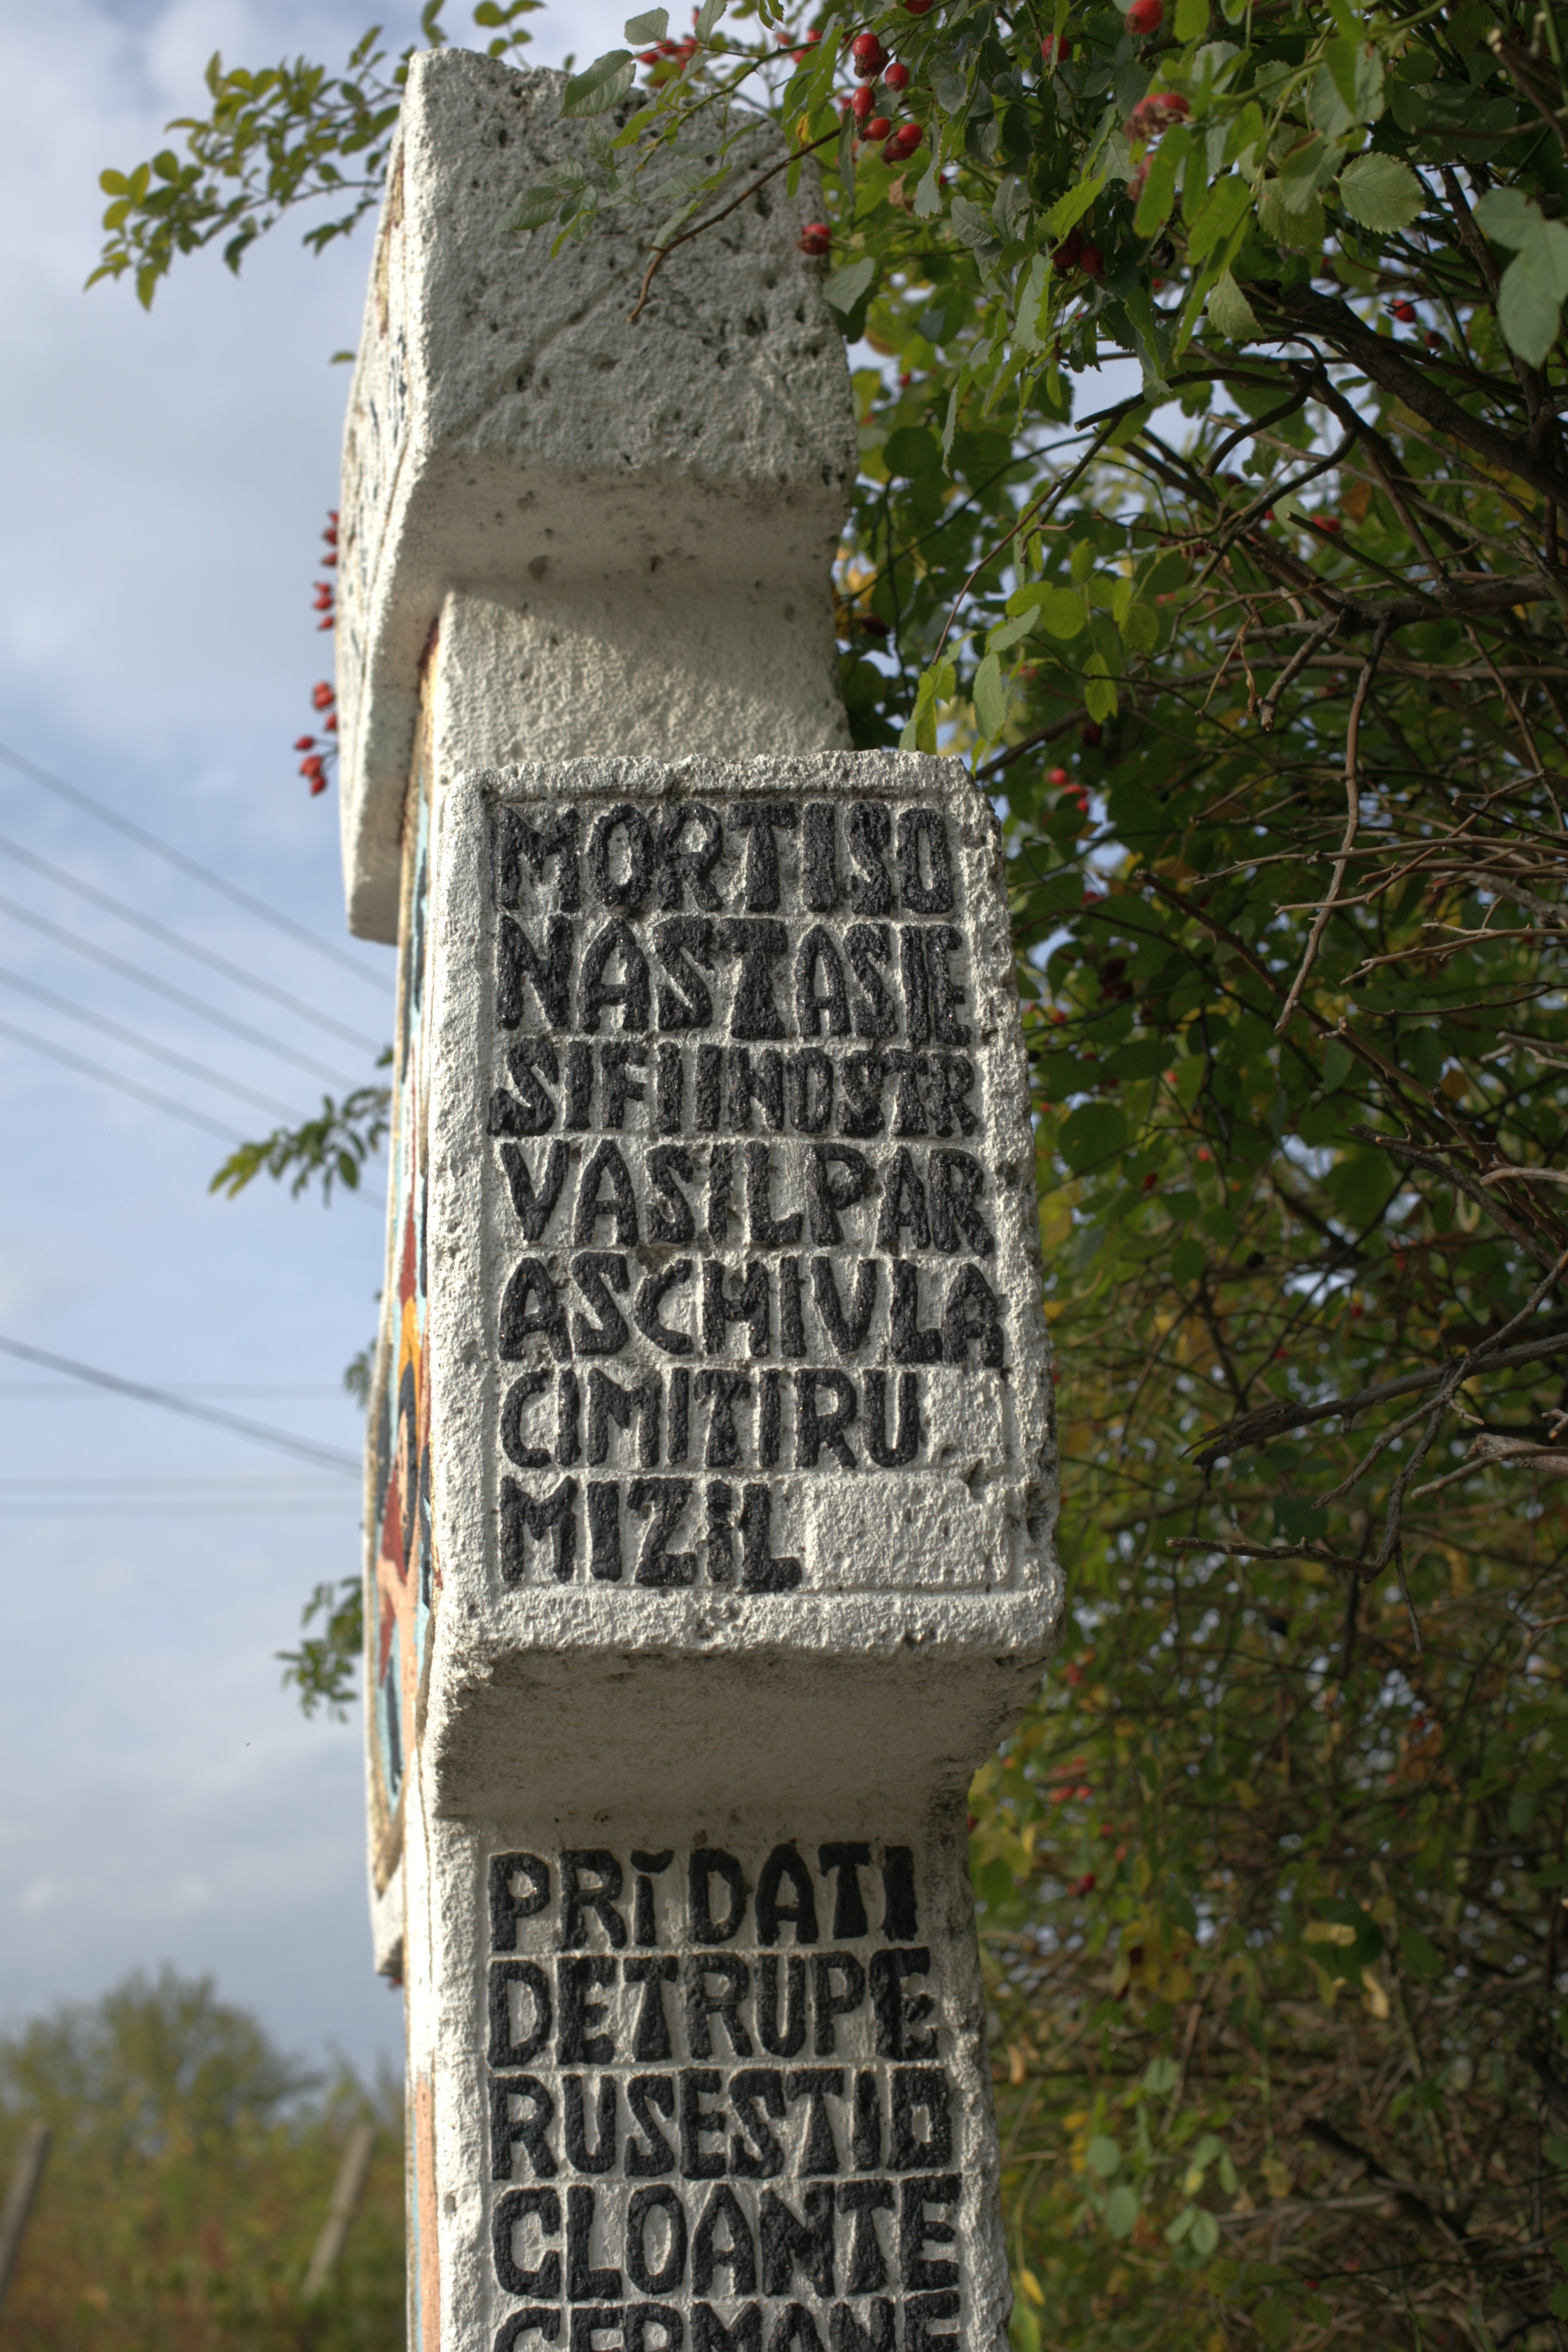 MORTISO
NASTASIE
SIFIINOSTR
VASILPAR
ASCHIVLA
CIMITIRU
MIZIL
PRĭDATI
DETRUPE
RUSESTID
CLOANTE
GERMANE